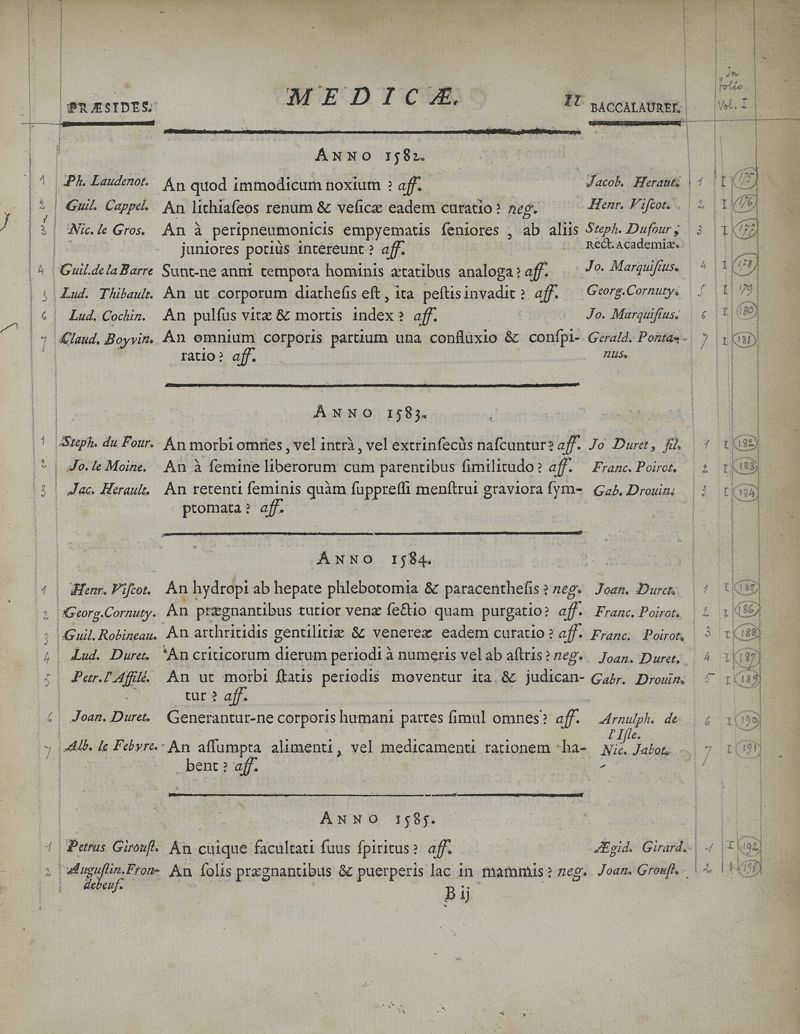 In
folio
Vol. I
PRÆSIDES. MEDICÆ. 11 BACCALAUREI.
ANNO 1582.
1 Ph. Laudenot. An quod immodicum noxium ? aff. Jacob. Heraut. 1 I 175
2 Guil. Cappel. An lithiaſeos renum & veſicæ eadem curatio ? neg. Henr. Viſcot. 2 I 176
3 Nic. le Gros. An à peripneumonicis empyematis ſeniores , ab aliis Steph. Dufour, 3 I 177
juniores potiùs intereunt ? aff. Rect. Academiæ.
4 Guil. de la Barre Sunt-ne anni tempora hominis ætatibus analoga ? aff. Jo. Marquiſius. 4 I 178
5 Lud. Thibault. An ut corporum diatheſis eſt, ita peſtis invadit ? aff. Georg. Cornuty. 5 I 179
6 Lud. Cochin. An pulſus vitæ & mortis index ? aff. Jo. Marquiſius. 6 I 180
7 Claud. Boyvin. An omnium corporis partium una confluxio & conſpi- Gerald. Ponta- 7 I 181
ratio ? aff. nus.
ANNO 1583.
1 Steph. du Four. An morbi omnes, vel intrà, vel extrinſecùs naſcuntur ? aff. Jo Duret, fil. 1 I 182
2 Jo. le Moine. An à ſemine liberorum cum parentibus ſimilitudo ? aff. Franc. Poirot. 2 I 183
3 Jac. Herault. An retenti ſeminis quàm ſuppreſſi menſtrui graviora ſym- Gab. Drouin. 3 I 184
ptomata ? aff.
ANNO 1584.
1 Henr. Viſcot. An hydropi ab hepate phlebotomia & paracentheſis ? neg. Joan. Duret. 1 I 185
2 Georg. Cornuty. An prægnantibus tutior venæ ſectio quam purgatio ? aff. Franc. Poirot. 2 I 186
3 Guil. Robineau. An arthritidis gentilitiæ & venereæ eadem curatio ? aff. Franc. Poirot. 3 I 188
4 Lud. Duret. An criticorum dierum periodi à numeris vel ab aſtris ? neg. Joan. Duret. 4 I 187
5 Petr. l'Affilé. An ut morbi ſtatis periodis moventur ita & judican- Gabr. Drouin. 5 I 189
tur ? aff.
6 Joan. Duret. Generantur-ne corporis humani partes ſimul omnes ? aff. Arnulph. de 6 I 190
l'Iſle.
7 Alb. le Febvre. An aſſumpta alimenti, vel medicamenti rationem ha- Nic. Jabot. 7 I 191
bent ? aff.
ANNO 1585.
1 Petrus Girouſt. An cuique facultati ſuus ſpiritus ? aff. Ægid. Girard. 1 I 192
2 Auguſtin. Fron- An ſolis prægnantibus & puerperis lac in mammis ? neg. Joan. Grouſt. 2 I
debeuf.
B ij